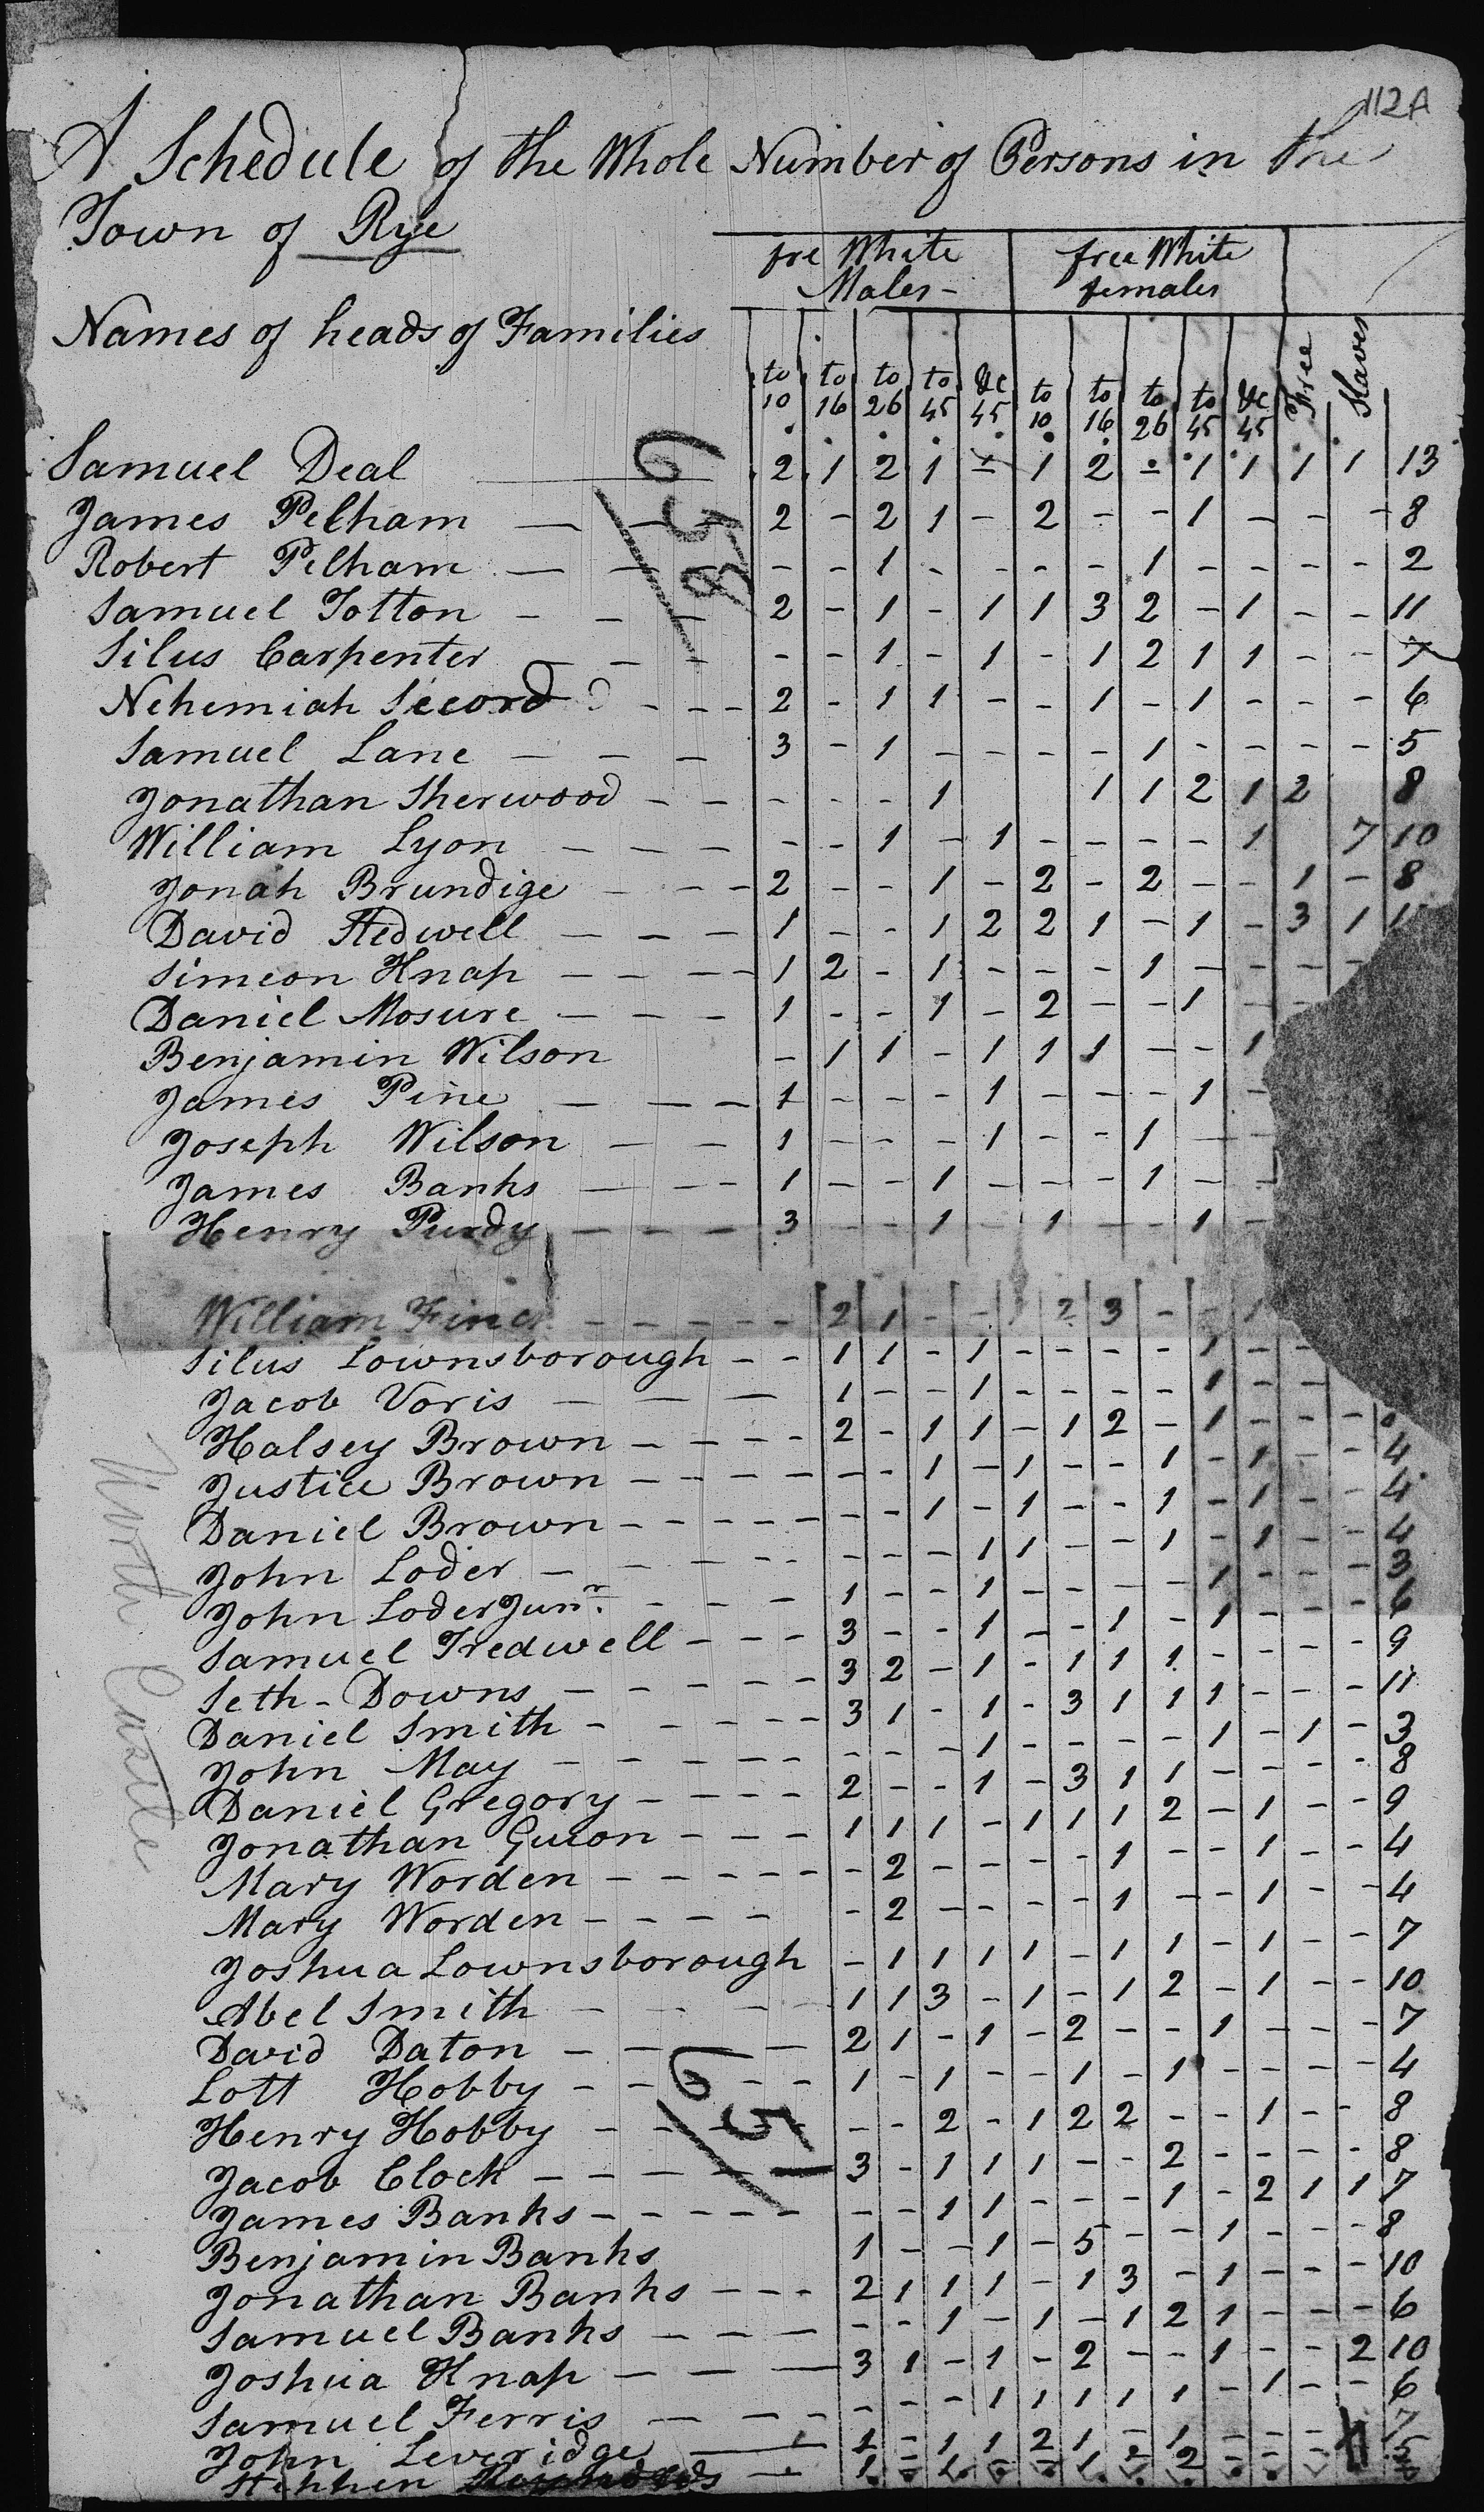 112A
A Schedule of the Whole Number of Persons in the
Town of Rye
fre White Males - free White females
Names of heads of Families
to 10 to 16 to 26 to 45 &c 45 to 10 to 16 to 26 to 45 &c 45 Free Slaves
658
Samuel Deal 2 1 2 1 - 1 2 - 1 1 1 1 13
James Pelham - - 2 - 2 1 - 2 - - 1 - - - 8
Robert Pelham - - - - 1 - - - - 1 - - - - 2
Samuel Totton - - - 2 - 1 - 1 1 3 2 - 1 - - 11
Silus Carpenter - - - - - 1 - 1 - 1 2 1 1 - - 7
Nehemiah Secord - - - 2 - 1 1 - - 1 - 1 - - - 6
Samuel Lane - - - 3 - 1 - - - - 1 - - - - 5
Jonathan Sherwood - - - - - 1 1 1 2 1 2 8
William Lyon - - - - - 1 - 1 - - - - 1 7 10
Jonah Brundige - - - 2 - - 1 - 2 - 2 - - 1 - 8
David Hedwell - - - 1 - - 1 2 2 1 - 1 - 3 1
Simeon Knap - - - - 1 2 - 1 - - - 1 - - -
Daniel Mosure - - - 1 - - 1 - 2 - - 1 -
Benjamin Wilson - 1 1 - 1 1 1 - - 1
James Pine - - - 1 - - - 1 - - - 1 -
Joseph Wilson - - 1 - - - 1 - - 1 - -
James Banks - - - 1 - - 1 - - - 1 - -
Henry Purdy - - - 3 - - 1 - 1 - - 1 -
William - - - - - 2 1 - - 2 3 - - 1
Silus Lownsborough - - 1 1 - 1 - - - - 1 - -
Jacob Voris - - - 1 - - 1 - - - - 1 - -
Halsey Brown - - - - 2 - 1 1 - 1 2 - 1 - - -
Justice Brown - - - - - - 1 - 1 - - 1 - 1 - - 4
Daniel Brown - - - - - - - 1 - 1 - - 1 - 1 - - 4
John Loder - - - - - - - 1 1 - - 1 - 1 - - 4
John Loder Junr. - - - 1 - - 1 - - - - 1 - - - 3
Samuel Tredwell - - - 3 - - 1 - - 1 - 1 - - - 6
Seth - Downs - - - - - 3 2 - 1 - 1 1 1 - - - - 9
Daniel Smith - - - - - 3 1 - 1 - 3 1 1 1 - - - 11
John May - - - - - - - - 1 - - - - 1 - 1 - 3
Daniel Gregory - - - - 2 - - 1 - 3 1 1 - - - - 8
Jonathan Guion - - - 1 1 1 - 1 1 1 2 - 1 - - 9
Mary Worden - - - - - - 2 - - - - 1 - - 1 - - 4
Mary Worden - - - - - 2 - - - - 1 - - 1 - - 4
Joshua Lownsborough - 1 1 1 1 - 1 1 - 1 - - 7
Abel Smith - - - - 1 1 3 - 1 - 1 2 - 1 - - 10
David Daton - - - 2 1 - 1 - 2 - - 1 - - - 7
Lott Hobby - - - - - 1 - 1 - - 1 - 1 - - - - 4
Henry Hobby - - - - - - 2 - 1 2 2 - - 1 - - 8
651
Jacob Clock - - - - - 3 - 1 1 1 - - 2 - - - - 8
James Banks - - - - - - - 1 1 - - - 1 - 2 1 1 7
Benjamin Banks 1 - - 1 - 5 - - 1 - - - 8
Jonathan Banks - - - 2 1 1 1 - 1 3 - 1 - - - 10
Samuel Banks - - - - - 1 - 1 - 1 2 1 - - - 6
Joshua Knap - - - 3 1 - 1 - 2 - - 1 - - 2 10
Samuel Ferris - - - - - - 1 1 1 1 1 - 1 - - 6
John Leveridge 1 - 1 1 2 1 - 1 - - - 7
Stephen
North Castle